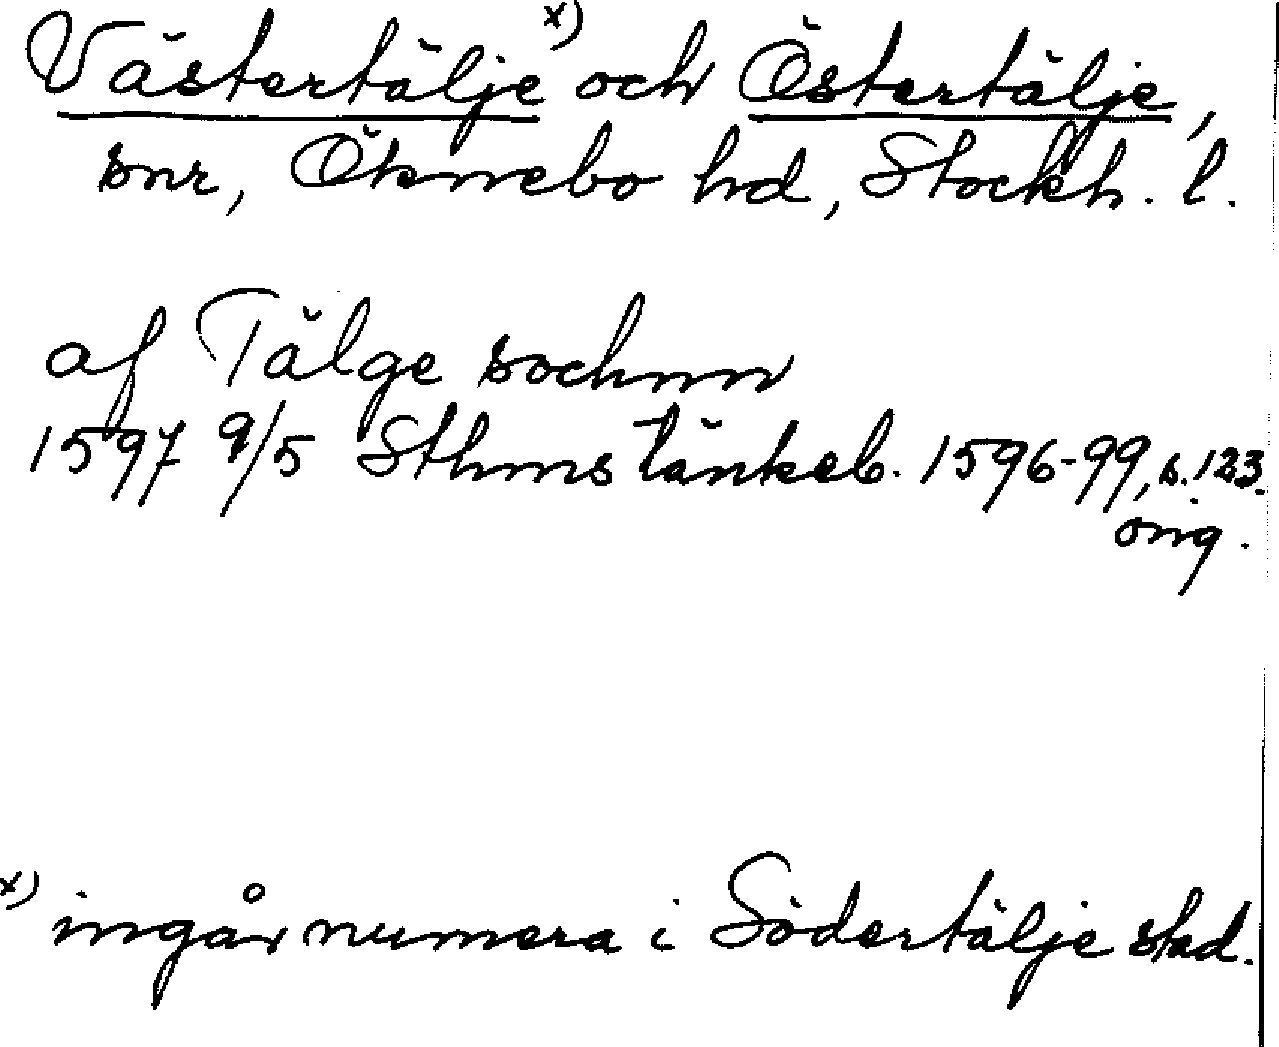 Västertälje x) och Östertälje,
snr, Öknebo hd, Stockh. l.
af Tälge sochnn
1597 9/5 Sthms tänkeb. 1596-99, s. 123.
orig.
x) ingår numera i Södertälje stad.